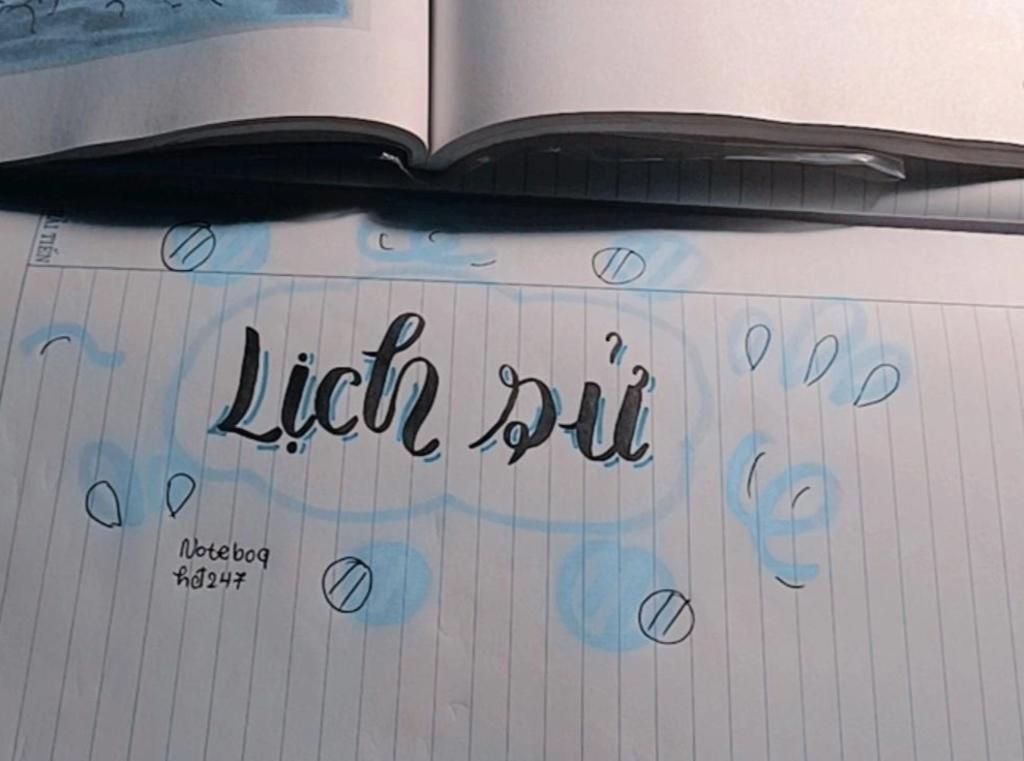 Lịch sử
Noteboq
hđ247